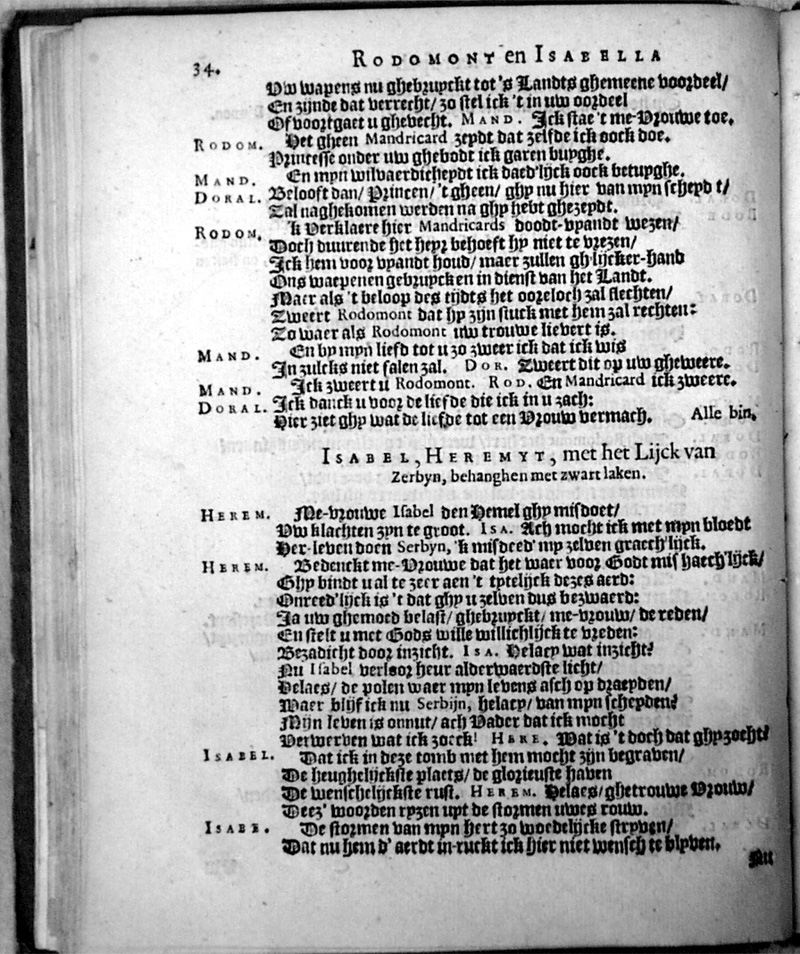 34. RODOMONT en ISABELLA
Uw wapens nu ghebruyckt tot 's Landts ghemeene voordeel/
En zijnde dat verrecht/ zo stel ick 't in uw oordeel
Of voortgaet u ghevecht. MAND. Ick stae 't me-Vrouwe toe.
RODOM. Het gheen Mandricard zeydt dat zelfde ick oock doe.
Princesse onder uw ghebodt ick garen buyghe.
MAND. En myn wilvaerdicheydt ick daed'lijck oock betuyghe.
DORAL. Belooft dan/ Princen/ 't gheen/ ghy nu hier van myn scheyd t/
Zal naghekomen werden na ghy hebt ghezeydt.
RODOM. 'k Verklaere hier Mandricards doodt-vyandt wezen/
Doch duurende het heyr behoeft hy niet te vrezen/
Ick hem voor vyandt houd/ maer zullen gh'lijcker-hand
Ons waepenen gebruycken in dienst van het Landt.
Maer als 't beloop des tijdts het ooreloch zal slechten/
Zweert Rodomont dat hy zijn stuck met hem zal rechten:
Zo waer als Rodomont uw trouwe lievert is.
MAND. En by myn liefd tot u zo zweer ick dat ick wis
In zulcks niet falen zal. DOR. Zweert dit op uw gheweere.
MAND. Ick zweert u Rodomont. ROD. En Mandricard ick zweere.
DORAL. Ick danck u voor de liefde die ick in u zach:
Hier ziet ghy wat de liefde tot een Vrouw vermach. Alle bin.
ISABEL, HEREMYT, met het Lijck van
Zerbyn, behanghen met zwart laken.
HEREM. Me-vrouwe Isabel den Hemel ghy misdoet/
Uw klachten zyn te groot. ISA. Ach mocht ick met myn bloedt
Her-leven doen Serbyn, 'k misdeed' my zelven graech'lijck.
HEREM. Bedenckt me-Vrouwe dat het waer voor Godt mishaech'lijck/
Ghy bindt u al te zeer aen 't tytelijck dezes aerd:
Onreed'lijck is 't dat ghy u zelven dus bezwaerd:
Ja uw ghemoed belast/ ghebruyckt/ me-vrouw/ de reden/
En stelt u met Gods wille willichlijck te vreden:
Bezadicht door inzicht. ISA. Helaey wat inzicht!
Nu Isabel verloor heur alderwaerdste licht/
Helaes/ de polen waer myn levens asch op draeyden/
Waer blijf ick nu Serbijn, helaey/ van myn scheyden!
Mijn leven is onnut/ ach Vader dat ick mocht
Verwerven wat ick zoeck! HERE. Wat is 't doch dat ghy zocht!
ISABEL. Dat ick in deze tomb met hem mocht zijn begraven/
De heughelijckste plaets/ de glorieuste haven
De wenschelijckste rust. HEREM. Helaes/ ghetrouwe Vrouw/
Deez' woorden ryzen uyt de stormen uwes rouw.
ISABE. De stormen van myn hert zo woedelijcke stryven/
Dat nu hem d' aerdt in-ruckt ick hier niet wensch te blyven.
Nu